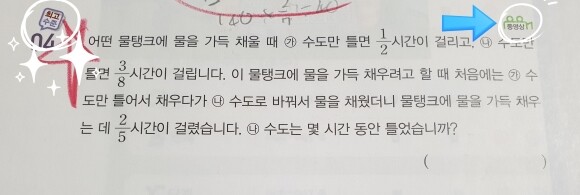 140 × 2/7 = 40
최고
수준
동영상
04 어떤 물탱크에 물을 가득 채울 때 ㉮ 수도만 틀면 1/2시간이 걸리고, ㉯ 수도만
틀면 3/8시간이 걸립니다. 이 물탱크에 물을 가득 채우려고 할 때 처음에는 ㉮ 수
도만 틀어서 채우다가 ㉯ 수도로 바꿔서 물을 채웠더니 물탱크에 물을 가득 채우
는 데 2/5시간이 걸렸습니다. ㉯ 수도는 몇 시간 동안 틀었습니까?
( )